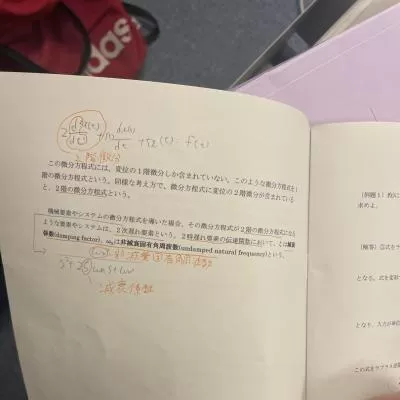 adidas
2 d²x(t)/(dt)² + 12 dx(t)/dt + 5x(t) = f(t)
2階微分
この微分方程式には、変位の1階微分しか含まれていない。このような微分方程式を1
階の微分方程式という。同様な考え方で、微分方程式に変位の2階微分が含まれている
と、2階の微分方程式という。
機械要素やシステムの微分方程式を導いた場合、その微分方程式が2階の微分方程式になる
ような要素やシステムは、2次遅れ要素という。2時遅れ要素の伝達関数において、ζは減衰
係数(damping factor)、ωnは非減衰固有角周波数(undamped natural frequency)という。
ωn: 非減衰固有角周波数
s²+2ζωn s+ω
減衰係数
(例題1)次に
求めよ。
(解答)①式を
となる。式を変
となり、入力が単位
この式をラプラス逆変